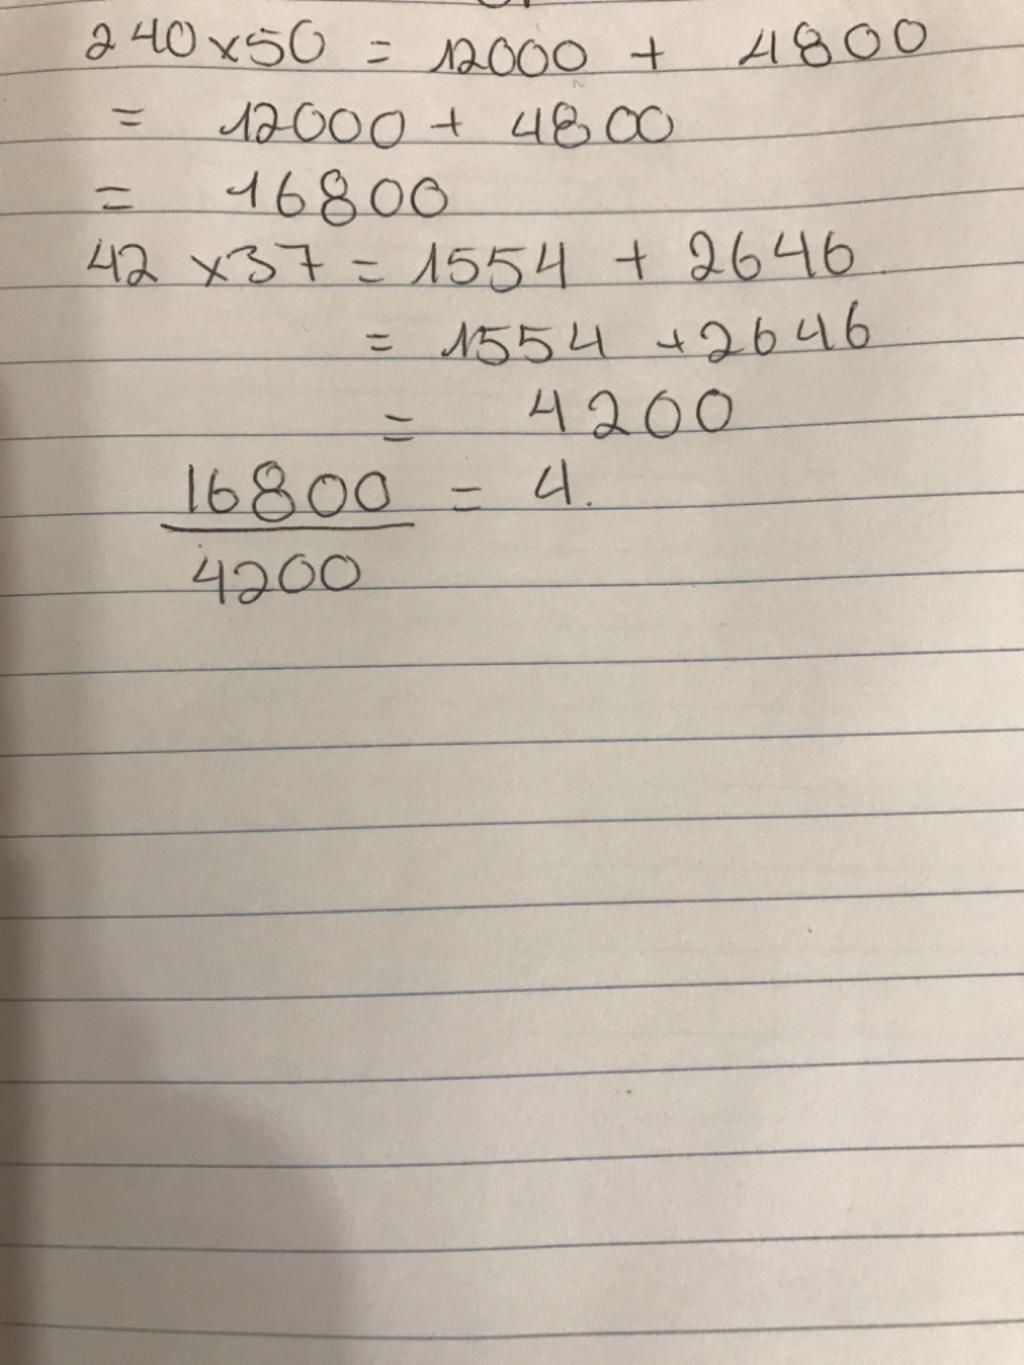 240x50 = 12000 + 4800
= 12000 + 4800
= 16800
42 x37 = 1554 + 2646
= 1554 +2646
= 4200
16800 = 4.
4200